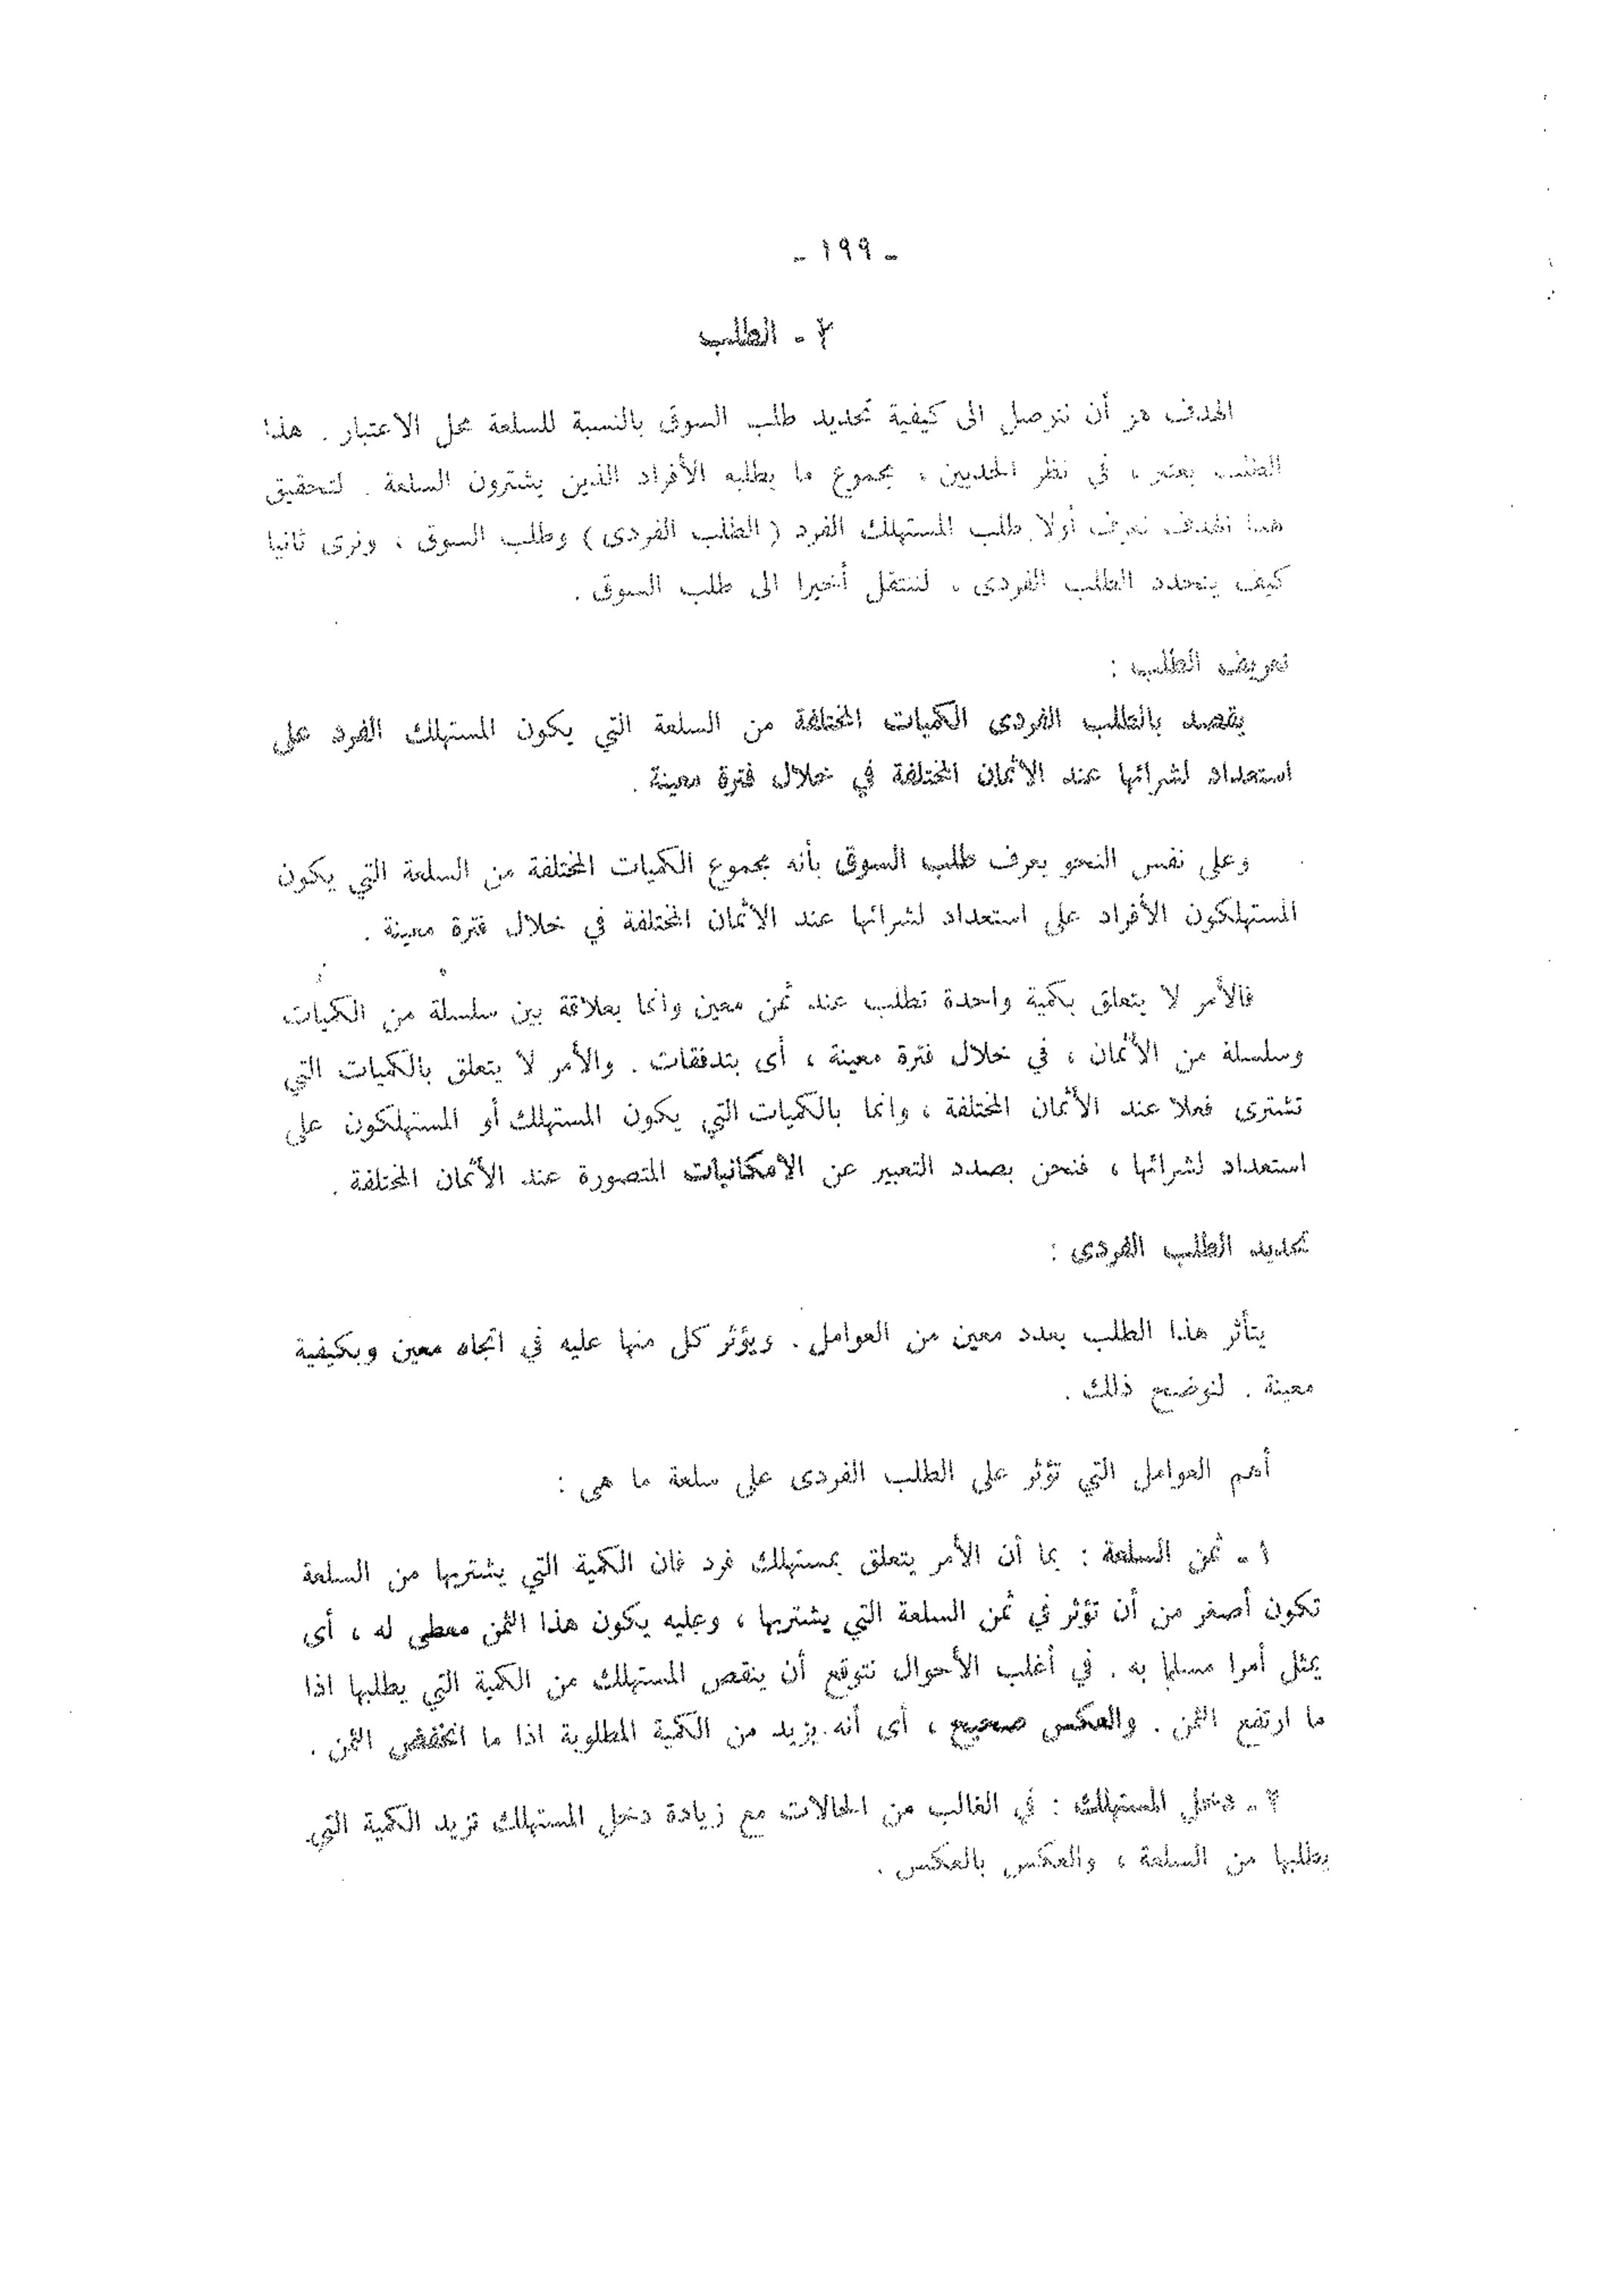 - ١٩٩ -
٢ - الطلب
الهدف هو أن نتوصل الى كيفية تحديد طلب السوق بالنسبة للسلعة محل الاعتبار . هذا
الطلب يعتبر ، في نظر الحديين ، مجموع ما يطلبه الأفراد الذين يشترون السلعة . لتحقيق
هذا الهدف نعرف أولا طلب المستهلك الفرد ( الطلب الفردى ) وطلب السوق ، ونرى ثانيا
كيف يتحدد الطلب الفردى ، لننتقل أخيرا الى طلب السوق .
تعريف الطلب :
يقصد بالطلب الفردى الكميات المختلفة من السلعة التي يكون المستهلك الفرد على
استعداد لشرائها عند الأثمان المختلفة في خلال فترة معينة .
وعلى نفس النحو يعرف طلب السوق بأنه مجموع الكميات المختلفة من السلعة التي يكون
المستهلكون الأفراد على استعداد لشرائها عند الأثمان المختلفة في خلال فترة معينة .
فالأمر لا يتعلق بكمية واحدة تطلب عند ثمن معين وانما بعلاقة بين سلسلة من الكميات
وسلسلة من الأثمان ، في خلال فترة معينة ، أى بتدفقات . والأمر لا يتعلق بالكميات التي
تشترى فعلا عند الأثمان المختلفة ، وانما بالكميات التي يكون المستهلك أو المستهلكون على
استعداد لشرائها ، فنحن بصدد التعبير عن الامكانيات المتصورة عند الأثمان المختلفة .
تحديد الطلب الفردى :
يتأثر هذا الطلب بعدد معين من العوامل . ويؤثر كل منها عليه في اتجاه معين وبكيفية
معينة . لنوضح ذلك .
أهم العوامل التي تؤثر على الطلب الفردى على سلعة ما هى :
١ - ثمن السلعة : بما أن الأمر يتعلق بمستهلك فرد فان الكمية التي يشتريها من السلعة
تكون أصغر من أن تؤثر في ثمن السلعة التي يشتريها ، وعليه يكون هذا الثمن معطى له ، أى
يمثل أمرا مسلما به . في أغلب الأحوال نتوقع أن ينقص المستهلك من الكمية التي يطلبها اذا
ما ارتفع الثمن . والعكس صحيح ، أى أنه يزيد من الكمية المطلوبة اذا ما انخفض الثمن .
٢ - دخل المستهلك : في الغالب من الحالات مع زيادة دخل المستهلك تزيد الكمية التي
يطلبها من السلعة ، والعكس بالعكس .